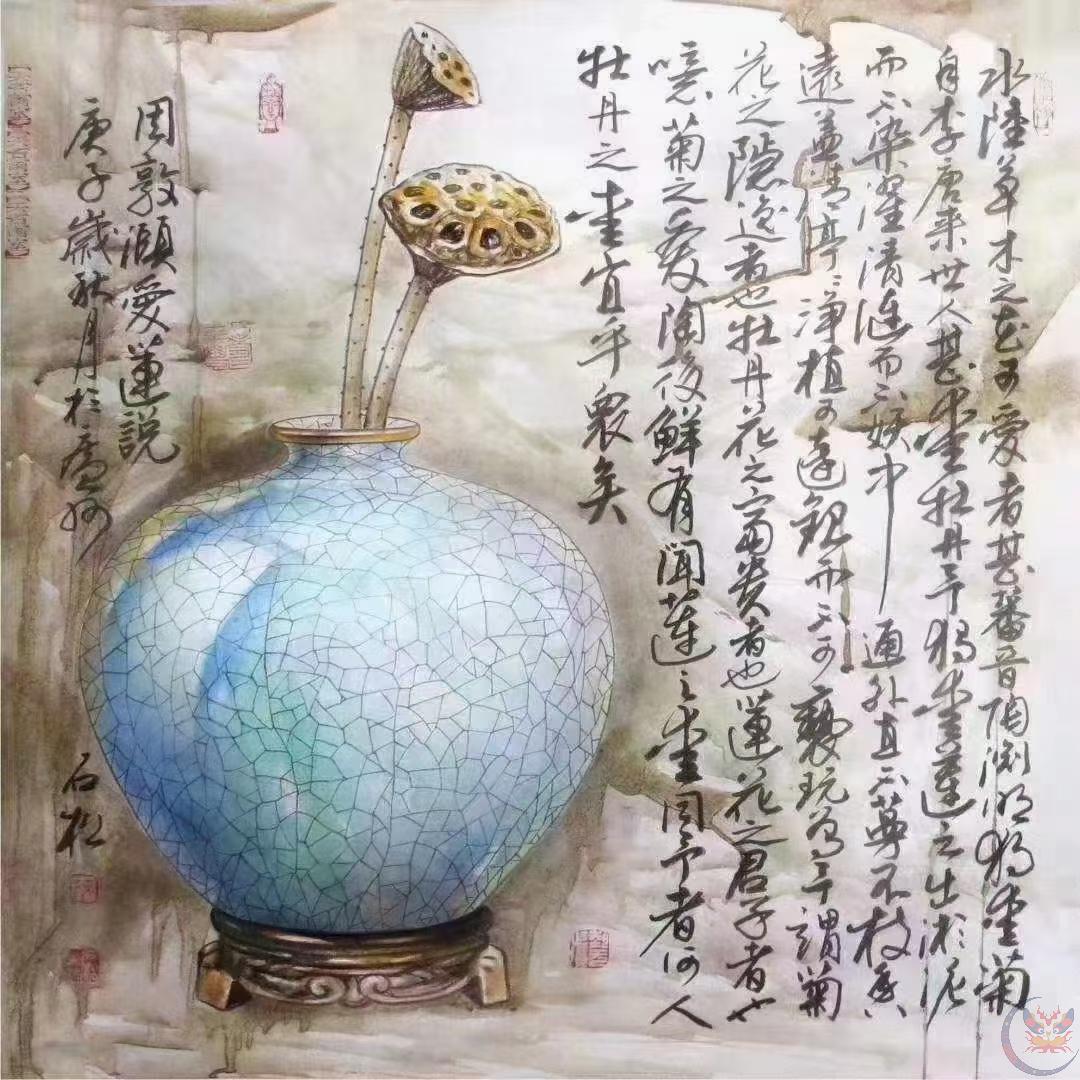 水陸草木之花可愛者甚蕃晉陶渊明獨愛菊
自李唐來世人甚愛牡丹予獨愛蓮之出淤泥
而不染濯清漣而不妖中通外直不蔓不枝香
遠益清亭〻淨植可遠觀而不可褻玩焉予謂菊
花之隱逸者也牡丹花之富贵者也蓮花之君子者也
噫菊之愛陶後鮮有聞蓮之愛同予者何人
牡丹之愛宜乎眾矣
周敦頤愛蓮説
庚子歲秋月於廬州
石松